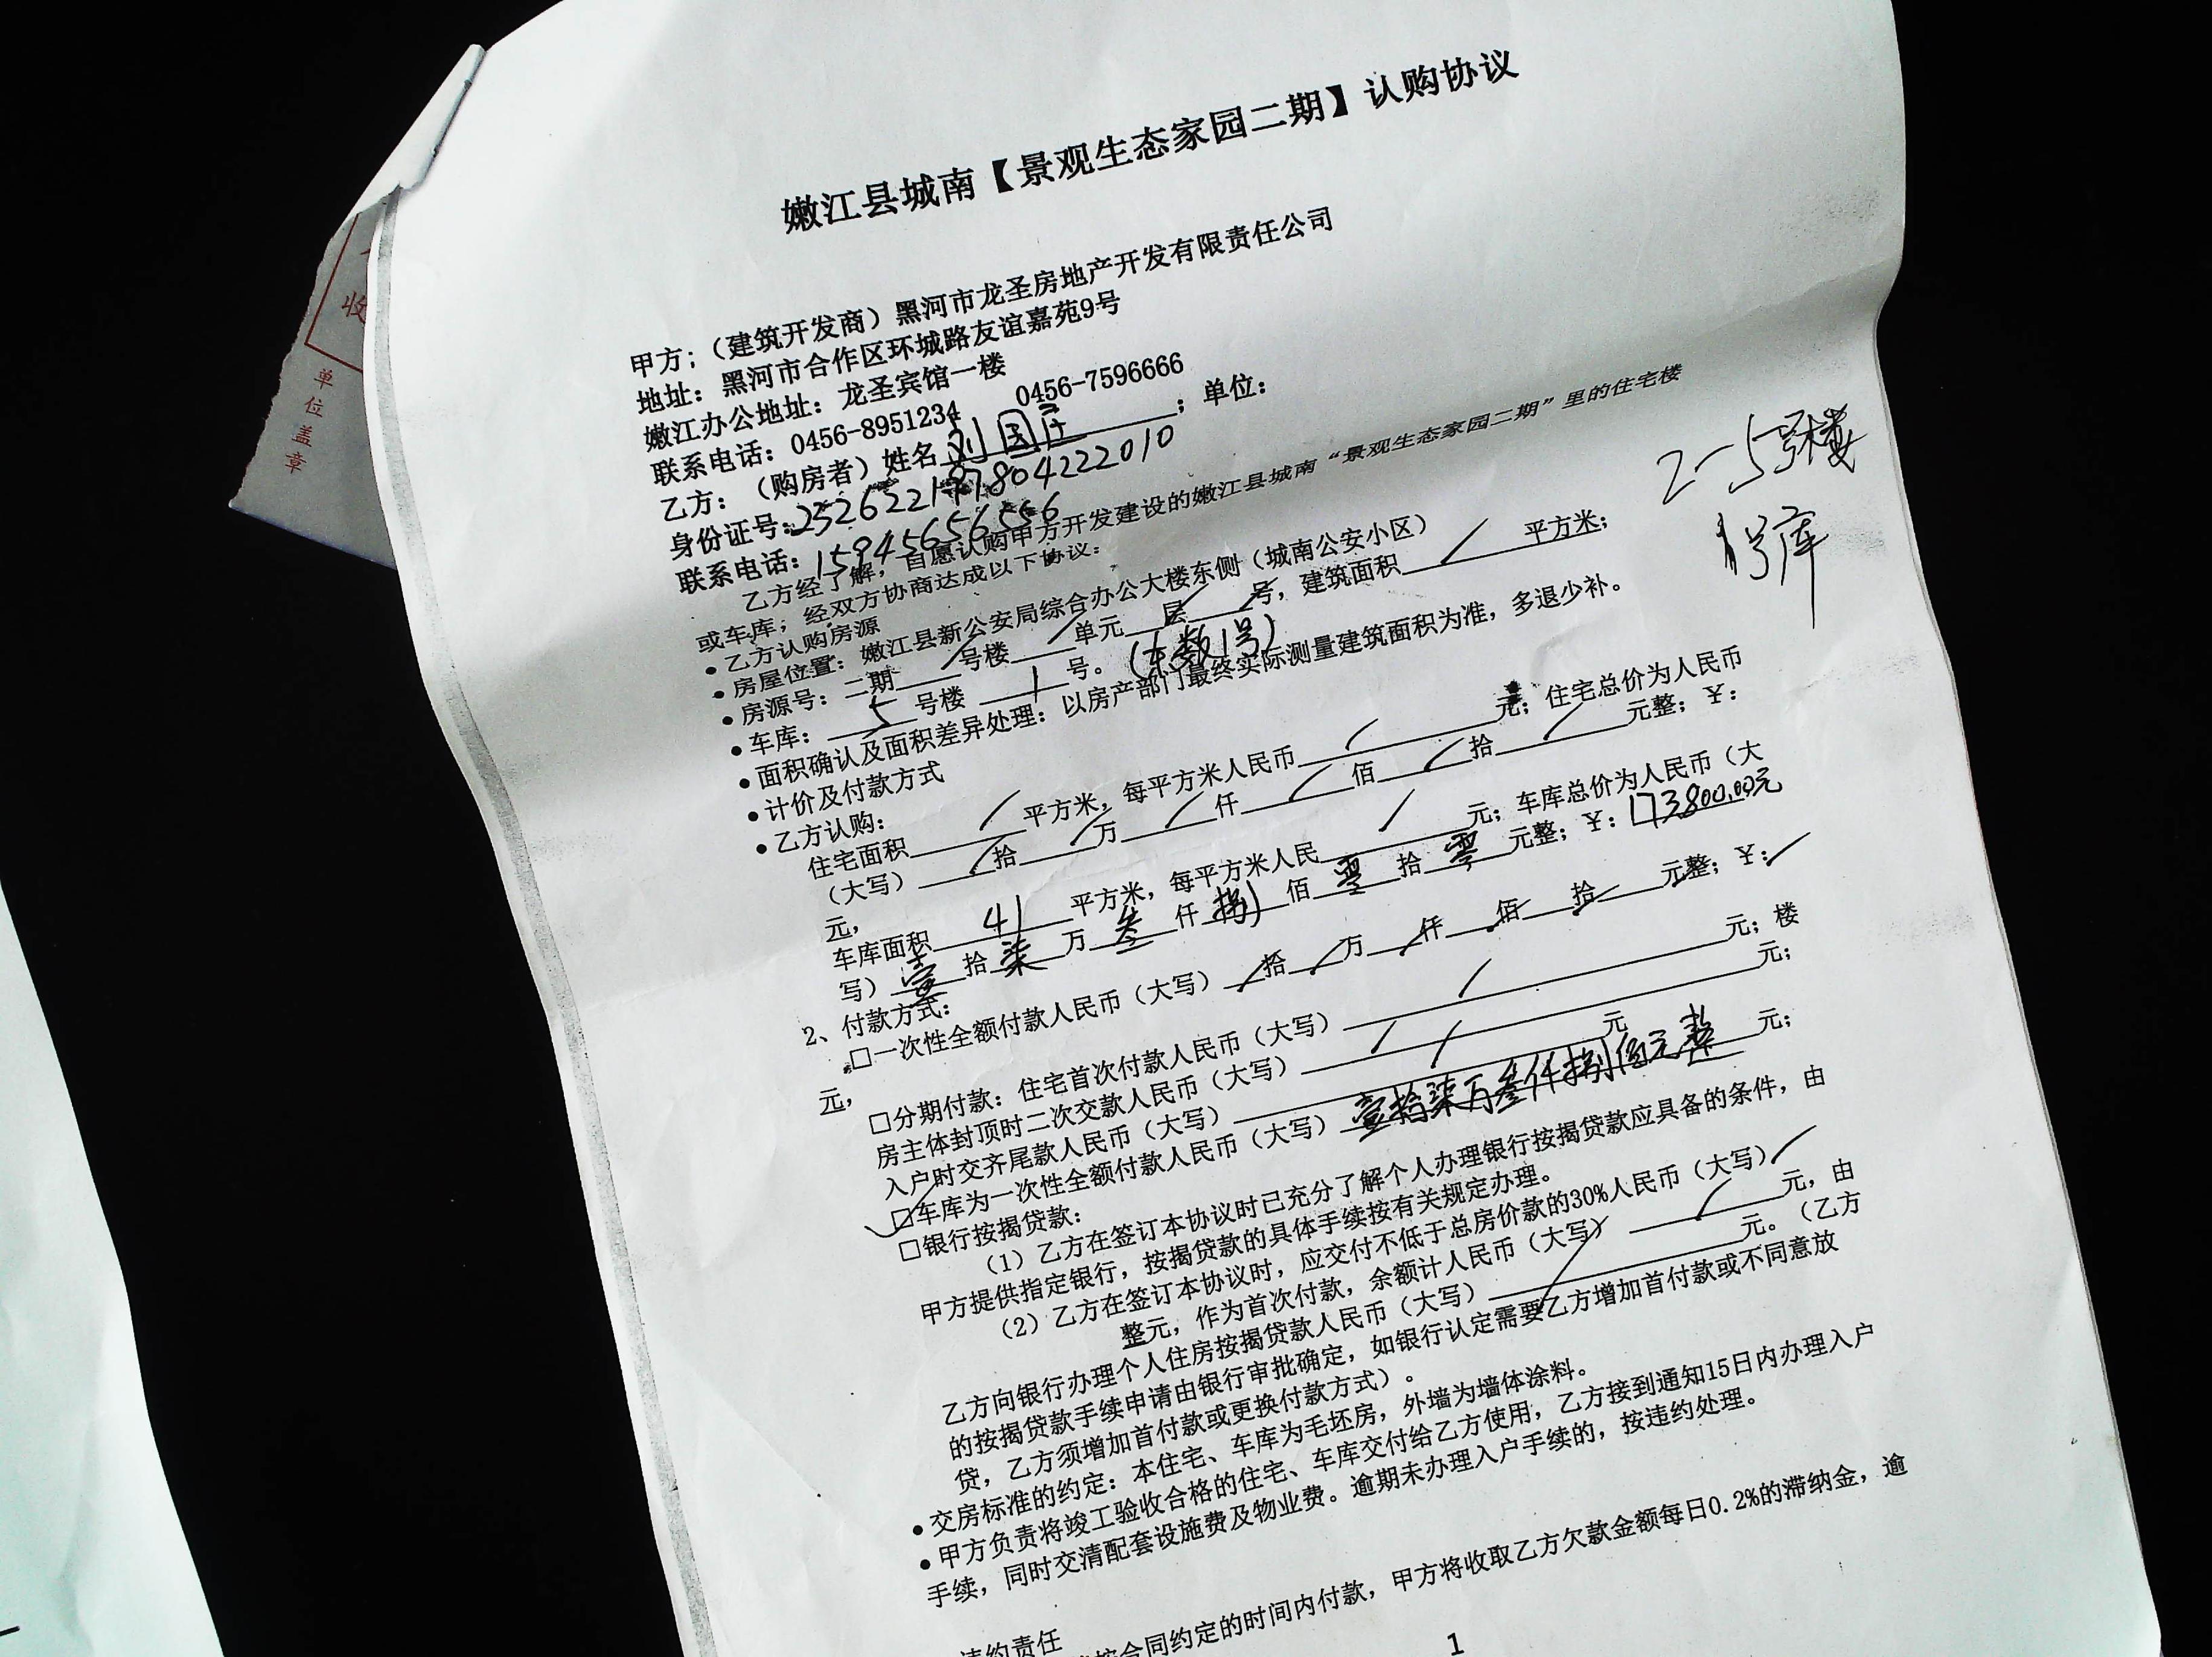 嫩江县城南【景观生态家园二期】认购协议
甲方;（建筑开发商）黑河市龙圣房地产开发有限责任公司
地址：黑河市合作区环城路友谊嘉苑9号
嫩江办公地址：龙圣宾馆一楼
联系电话：0456-8951234 0456-7596666
乙方：（购房者）姓名 刘国 ；单位：
身份证号:
联系电话：15945656556
乙方经了解，自愿认购甲方开发建设的嫩江县城南“景观生态家园二期”里的住宅楼
或车库；经双方协商达成以下协议：
• 乙方认购房源
• 房屋位置：嫩江县新公安局综合办公大楼东侧（城南公安小区）
• 房源号：二期 / 号楼 / 单元 / 层 / 号，建筑面积 / 平方米；
• 车库： 5 号楼 1 号。（东数1号）
2-5号楼
1号库
• 面积确认及面积差异处理：以房产部门最终实际测量建筑面积为准，多退少补。
• 计价及付款方式
• 乙方认购：
住宅面积 / 平方米，每平方米人民币 / 元；住宅总价为人民币
（大写） / 拾 / 万 / 仟 / 佰 / 拾 / 元整；￥：
元，
车库面积 41 平方米，每平方米人民 / 元；车库总价为人民币（大
写） 壹 拾 柒 万 叁 仟 捌 佰 零 拾 零 元整；￥：173800.00元
2、付款方式：
□一次性全额付款人民币（大写） / 拾 / 万 / 仟 / 佰 / 拾 / 元整；￥：/
元，
□分期付款：住宅首次付款人民币（大写） / 元；楼
房主体封顶时二次交款人民币（大写） / 元；
入户时交齐尾款人民币（大写） / 元
☑车库为一次性全额付款人民币（大写） 壹拾柒万叁仟捌佰元整 元；
□银行按揭贷款：
（1）乙方在签订本协议时已充分了解个人办理银行按揭贷款应具备的条件，由
甲方提供指定银行，按揭贷款的具体手续按有关规定办理。
（2）乙方在签订本协议时，应交付不低于总房价款的30%人民币（大写） /
整元，作为首次付款，余额计人民币（大写） / 元，由
乙方向银行办理个人住房按揭贷款人民币（大写） / 元。（乙方
的按揭贷款手续申请由银行审批确定，如银行认定需要乙方增加首付款或不同意放
贷，乙方须增加首付款或更换付款方式）。
• 交房标准的约定：本住宅、车库为毛坯房，外墙为墙体涂料。
• 甲方负责将竣工验收合格的住宅、车库交付给乙方使用，乙方接到通知15日内办理入户
手续，同时交清配套设施费及物业费。逾期未办理入户手续的，按违约处理。
违约责任
按合同约定的时间内付款，甲方将收取乙方欠款金额每日0.2%的滞纳金，逾
1
收
单位盖章